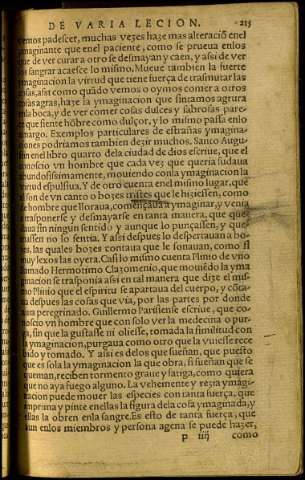 DE VARIA LECION. 215
vemos padescer, muchas vezes haze mas alteracíõ enel
ymaginante que enel paciente, como se prueua enlos
que de ver curar a otro se desmayan y caen, y assi de ver
los sangrar acaesce lo mismo. Mueue tambien la fuerte
ymaginacion la virtud que tiene fuerça de trasmutar las
cosas, assi como quãdo vemos o oymos comer a otros
cosas agras, haze la ymaginacion que sintamos agura
enla boca, y de ver comer cosas dulces y sabrosas pare-
ce que siente hõbre como dulçor, y lo mismo passa enlo
amargo. Exemplos particulares de estrañas ymagina-
ciones podriamos tambien dezir muchos. Sanct Augu-
stin enel libro quarto dela ciudad de dios escriue, que el
conoscio vn hombre que cada vez que queria sudaua
abundosissimamente, mouiendo conla ymaginacion la
virtud espulsiua. Y de otro cuenta enel mismo lugar, que
al son de vn canto o bozes tristes que le hiziessen, como
de hombre que lloraua, començaua a ymaginar, y venia
a trasponerse y desmayarse en tanta manera, que que
daua sin ningun sentido y aunque lo punçassen, y que
massen no lo sentia. Y assi despues lo despertauan a bo-
zes, las quales bozes contaua que le sonauan, como si
muy lexos las oyera. Casi lo mismo cuenta Plinio de vno
llamado Hermotimo Clazomenio, que mouiẽdo la yma
ginacion se trasponia assi en tal manera que dize el mis-
mo Plinio que el espiritu se apartaua del cuerpo, y cõta-
ua despues las cosas que via, por las partes por donde
auia peregrinado. Guillermo Parisiense escriue, que co-
noscio vn hombre que con solo ver la medecina o pur-
ga, sin que la gustasse ni oliesse, tomada la similitud con
la ymaginacion, purgaua como otro que la vuiesse rece
bido y tomado. Y assi es delos que sueñan, que puesto
que es sola la ymaginacion la que obra, si sueñan que se
queman, reciben tormento graue y fatiga, como quiera
que no aya fuego alguno. La vehemente y rezia ymagi-
nacion puede mouer las especies con tanta fuerça, que
imprima y pinte en ellas la figura dela cosa ymaginada, y
ellas la obren enla sangre. Es esto de tanta fuerça, que
aun enlos miembros y persona agena se puede hazer,
P iiij como